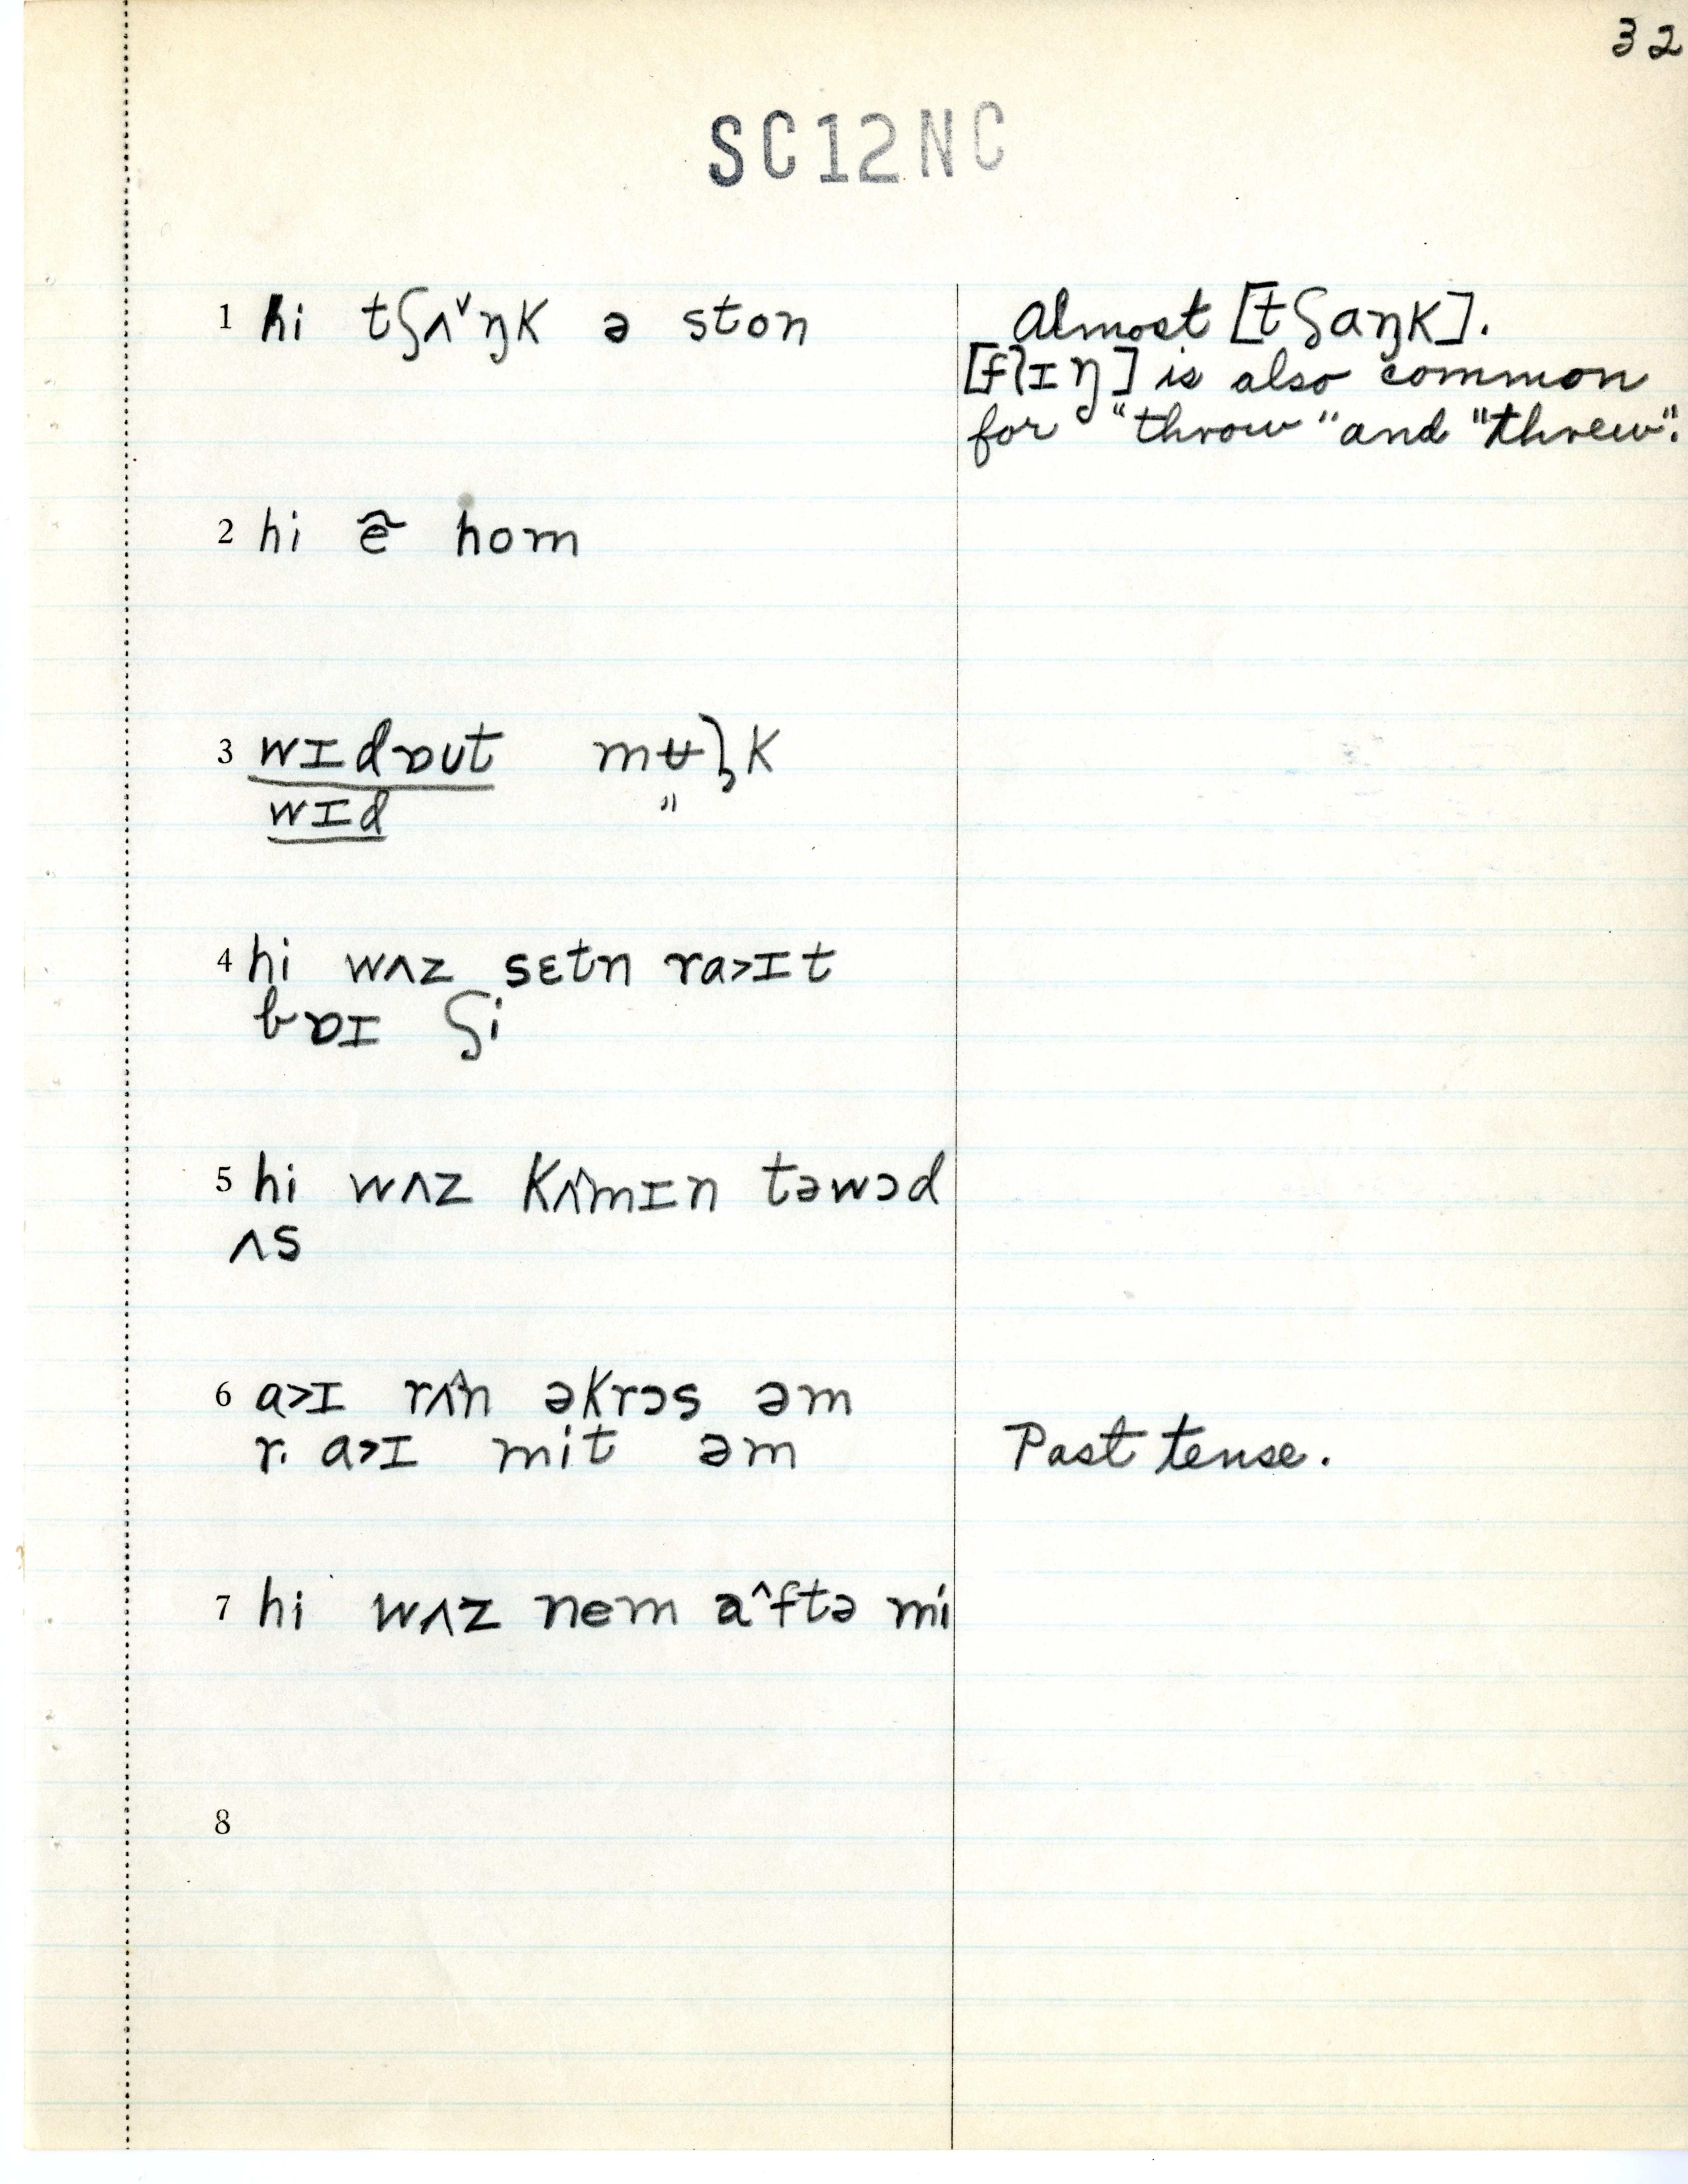 32
SC12NC
1 hi tʃʌˇŋk ə ston
Almost [tʃaŋk].
[flɪŋ] is also common
for "throw" and "threw".
2 hi ẽ hom
3 wɪdɒʊt mʉɫk
wɪd "
4 hi wʌz sɛtn ra>ɪt
bɒɪ ʃi
5 hi wʌz kʌ̂mɪn təwɔd
ʌs
6 a>ɪ rʌ̂n əkrɔs əm
r. a>ɪ mit əm
Past tense.
7 hi wʌz nem a^ftə mi
8